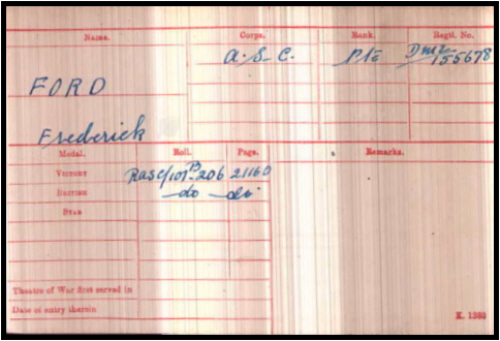 Name. Corps. Rank. Regtl. No.
A.S.C. Pte DM2
155678
FORD
Frederick
Medal. Roll. Page. Remarks.
VICTORY RASC/101 B 206 21160
BRITISH do do
STAR
Theatre of War first served in
Date of entry therein
K. 1380